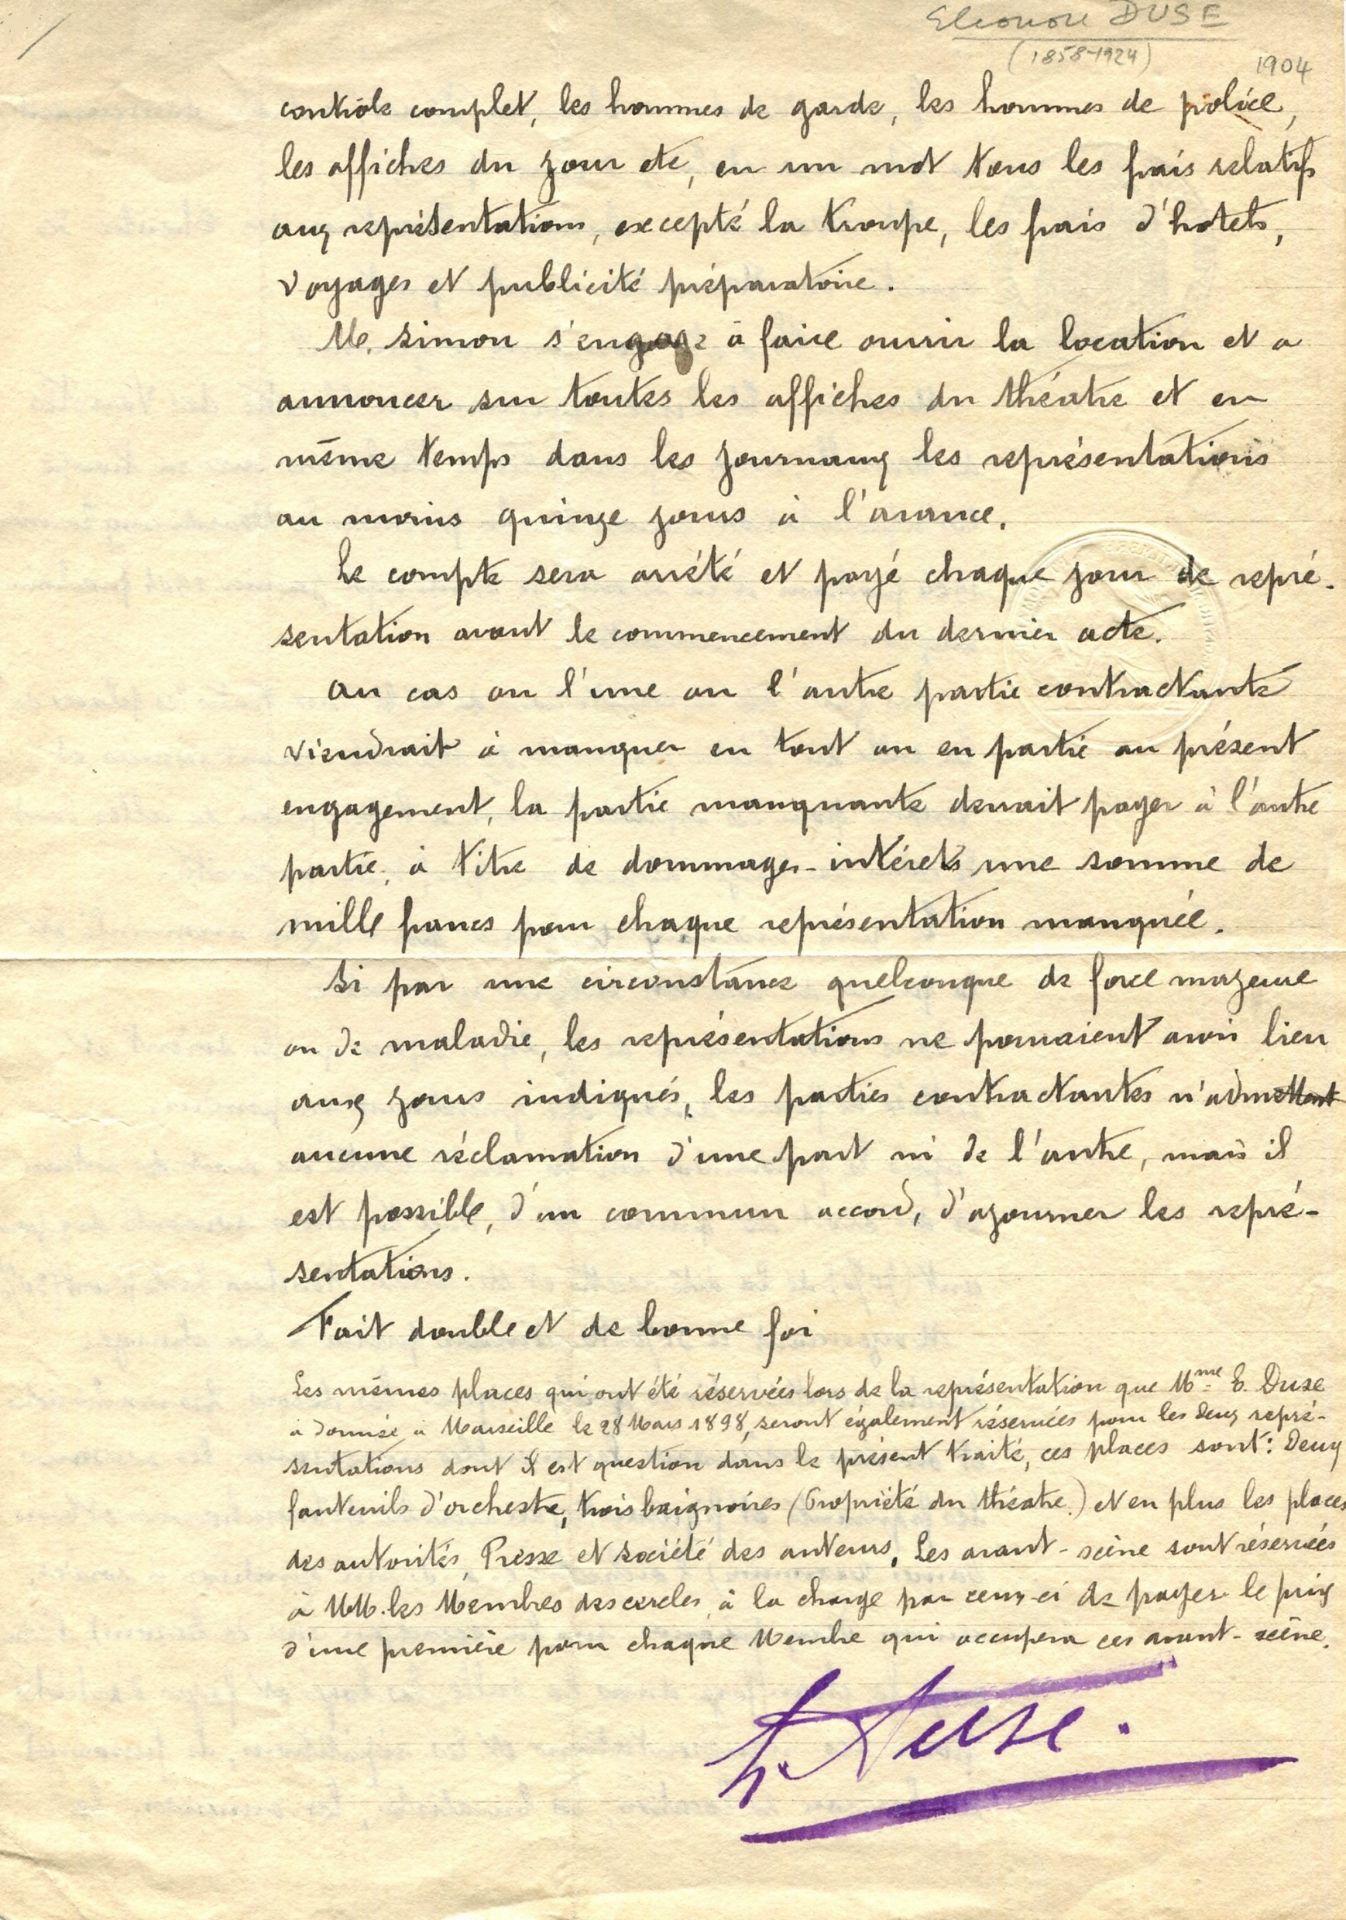 Eleonore DUSE
(1858-1924)
1904
controle complet, les hommes de garde, les hommes de police,
les affiches du jour etc, en un mot tous les frais relatifs
aux représentations, excepté la troupe, les frais d'hotels,
voyages et publicité préparatoire.
M. Simon s'engage à faire ouvrir la location et a
annoncer sur toutes les affiches du théatre et en
même temps dans les journaux les représentations
au moins quinze jours à l'avance.
Le compte sera arrété et payé chaque jour de repré-
sentation avant le commencement du dernier acte.
Au cas ou l'une ou l'autre partie contractante
viendrait à manquer en tout ou en partie au présent
engagement, la partie manquante devrait payer à l'autre
partie, à titre de dommages-intérets une somme de
mille francs pour chaque représentation manquée.
Si par une circonstance quelconque de force majeure
ou de maladie, les représentations ne pouvaient avoir lieu
aux jours indiqués, les parties contractantes n'admettent
aucune réclamation d'une part ni de l'autre, mais il
est possible, d'un commun accord, d'ajourner les repré-
sentations.
Fait double et de bonne foi
Les mêmes places qui ont été réservées lors de la représentation que Mme E. Duse
a donnée à Marseille le 28 Mars 1898, seront également réservées pour les deux repré-
sentations dont il est question dans le présent traité, ces places sont: Deux
fauteuils d'orchestre, trois baignoires (Propriété du théatre.) et en plus les places
des autorités, Presse et Société des auteurs. Les avant-scène sont réservées
à MM. les Membres des cercles, à la charge par ceux-ci de payer le prix
d'une première pour chaque Membre qui occupera ces avant-scène.
E. Duse.